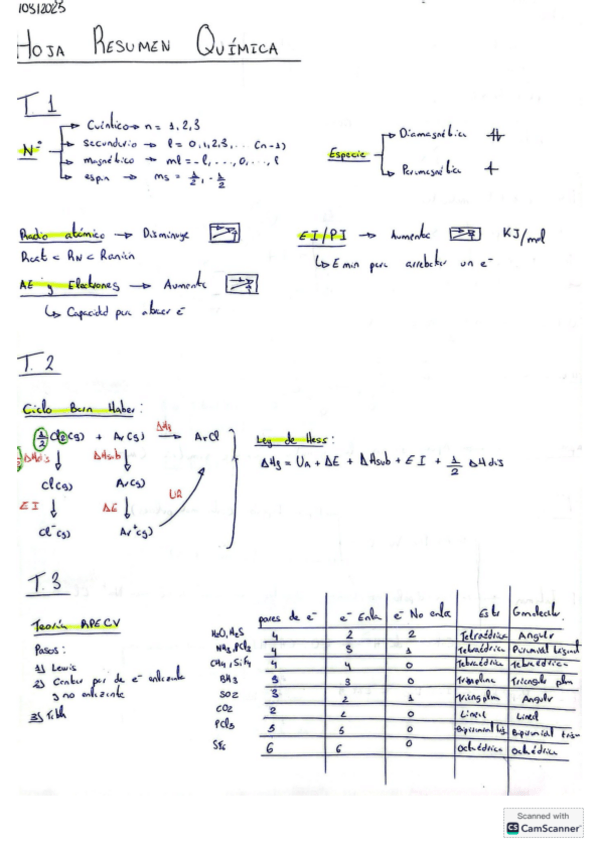 10S12023
HOJA RESUMEN QUÍMICA
T.1
Nº
Cuántico → n = 1, 2, 3
secundario → l = 0, 1, 2, 3, ... (n-1)
magnético → ml = -l, ..., 0, ..., l
espin → ms = 1/2, -1/2
Especie
Diamagnética
Paramagnética
Radio atómico → Disminuye
Rcat < RN < Ranión
EI/PI → Aumenta KJ/mol
↳ E min para arrebatar un e-
AE y Electroneg → Aumenta
↳ Capacidad para atraer e-
T.2
Ciclo Born Haber:
1/2 Cl2(g) + Ar(g) → ArCl
ΔHf
ΔHdis ΔHsub
Cl(g) Ar(g)
EI ΔE UR
Cl-(g) Ar+(g)
Ley de Hess:
ΔHf = UR + ΔE + ΔHsub + EI + 1/2 ΔHdis
T.3
Teoría RPECV
Pasos:
1) Lewis
2) Contar par de e- enlazante
y no enlazante
3) Tabla
pares de e- e- Enla e- No enlaz Estr G molecular
H2O, H2S 4 2 2 Tetraédrica Angular
NH3, PCl3 4 3 1 Tetraédrica Piramidal
CH4, SiF4 4 4 0 Tetraédrica Tetraédrica
BH3 3 3 0 Triangular plan
SO2 3 2 1 Angular
CO2 2 2 0 Lineal Lineal
PCl5 5 5 0 Bipiramidal Bipiramidal
SF6 6 6 0 Octaédrica Octaédrica
Scanned with
CS CamScanner